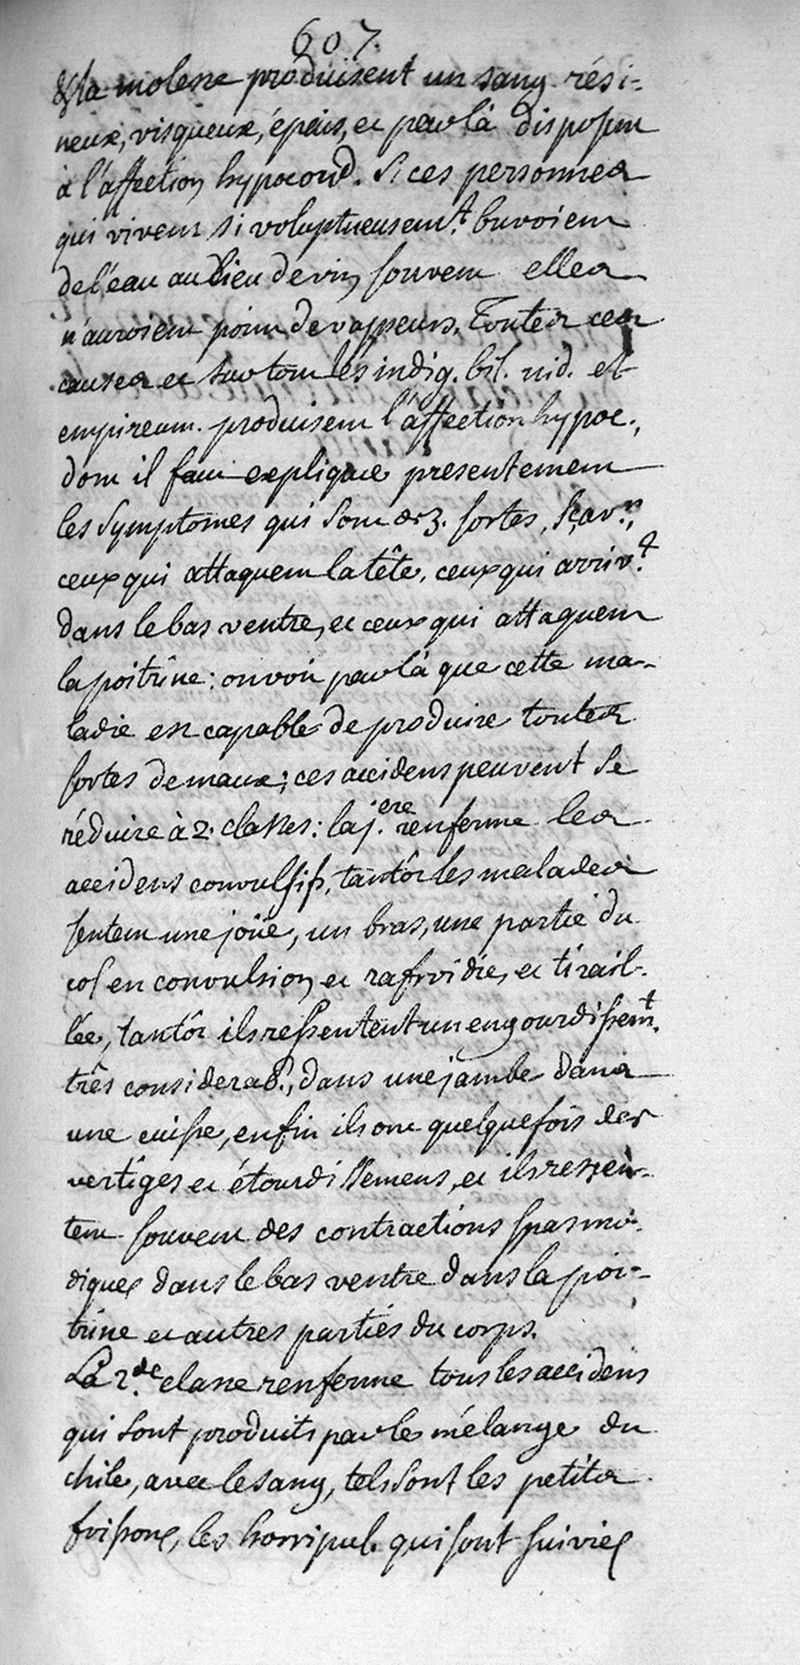 607.
& la molesse produisent un sang rési-
neux, visqueux, épais, et par là disposent
à l'affection hypocond. Si ces personnes
qui vivent si voluptueusemt. buvoient
de l'eau au lieu de vin, souvent elles
n'auroient point de vappeurs. Toutes ces
causes et surtout les indig. bil. nid. et
empireum. produisent l'affection hypoc.,
dont il faut expliquer presentement
les symptomes qui sont de 3. sortes, sçavr.,
ceux qui attaquent la tête, ceux qui arrivt.
dans le bas ventre, et ceux qui attaquent
la poitrine: on voit par là que cette ma-
ladie est capable de produire toutes
sortes de maux; ces accidens peuvent se
réduire à 2. classes: la j.ere renferme les
accidens convulsifs, tantôt les malades
sentent une joüe, un bras, une partie du
col en convulsion et rafroidie, et tirail-
lée, tantôt ils ressentent un engourdissemt.
três considerab., dans une jambe dans
une cuisse, enfin ils ont quelquefois des
vertiges et étourdissemens, et ils ressen-
tent souvent des contractions spasmo-
diques dans le bas ventre dans la poi-
trine et autres parties du corps.
La 2.de classe renferme tous les accidens
qui sont produits par le mélange du
chile, avec le sang, tels sont les petits
frissons, les horripul. qui sont suivies